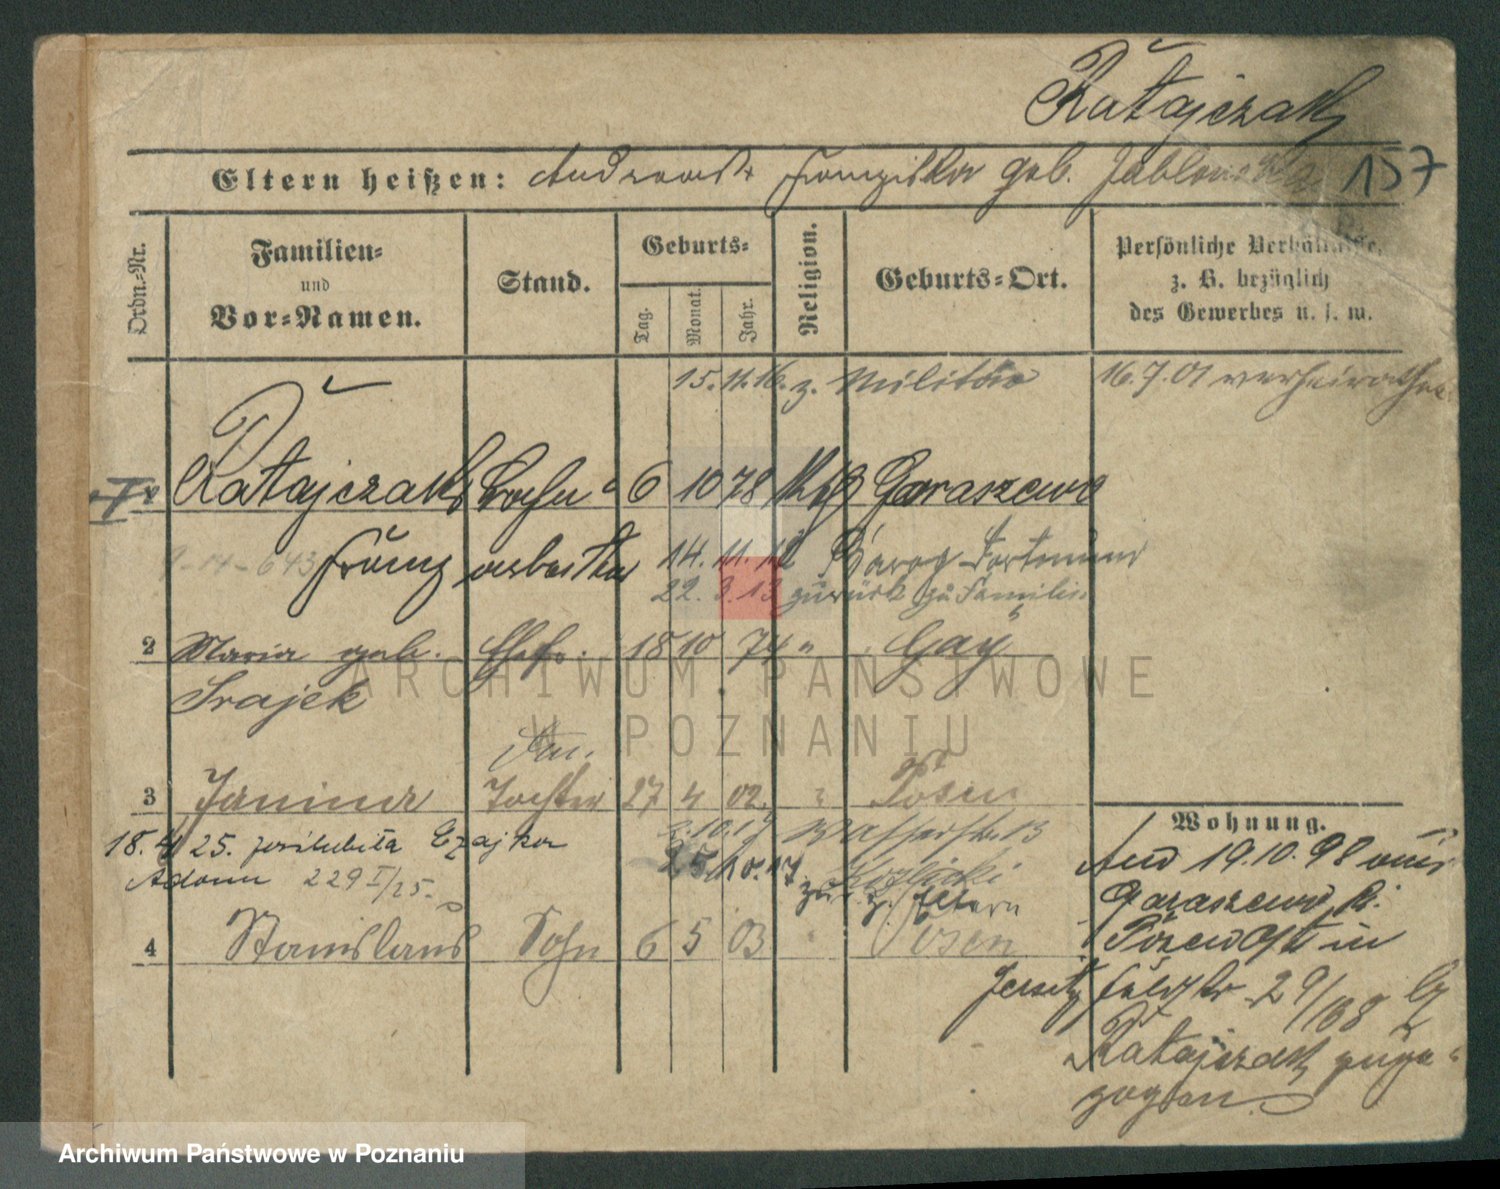 Ratajczak
157
Eltern heißen: Andreas u. Franziska geb. Jablonska
Ordn.-Nr.
Familien-
und
Vor-Namen.
Stand.
Geburts-
Tag.
Monat.
Jahr.
Religion.
Geburts-Ort.
Persönliche Verhältnisse,
z. B. bezüglich
des Gewerbes u. s. w.
15. 11. 16. z. Militär
16.7.01 verheirathet
1 Ratajczak 6 10 78 kth Garaszewo
Franz arbeiter
14. 11. 12 Dortmund
22. 3. 13 zurück zu Familie
2 Maria geb. Ehefr. 18 10 74 " Gay
Srajek
3 Janina Tochter 27 4 02 " Posen
2. 10. 17 Wasserstr. 13
18. 4. 25. poślubiła Czajka
25. 10. 17 Kozlicki
Adam 229 I/25.
zur. z. Eltern
4 Stanislaus Sohn 6 5 03 " Posen
Wohnung.
Am 19.10.98 aus
Garaszewo Kr.
Posen Ost in
Jersitz 29/168
Ratajczak zuge-
zogen.
ARCHIWUM PAŃSTWOWE
W POZNANIU
Archiwum Państwowe w Poznaniu